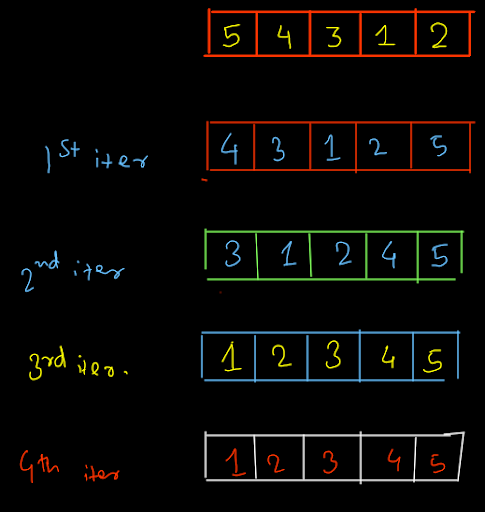 5 4 3 1 2
1st iter 4 3 1 2 5
2nd iter 3 1 2 4 5
3rd iter. 1 2 3 4 5
4th iter 1 2 3 4 5